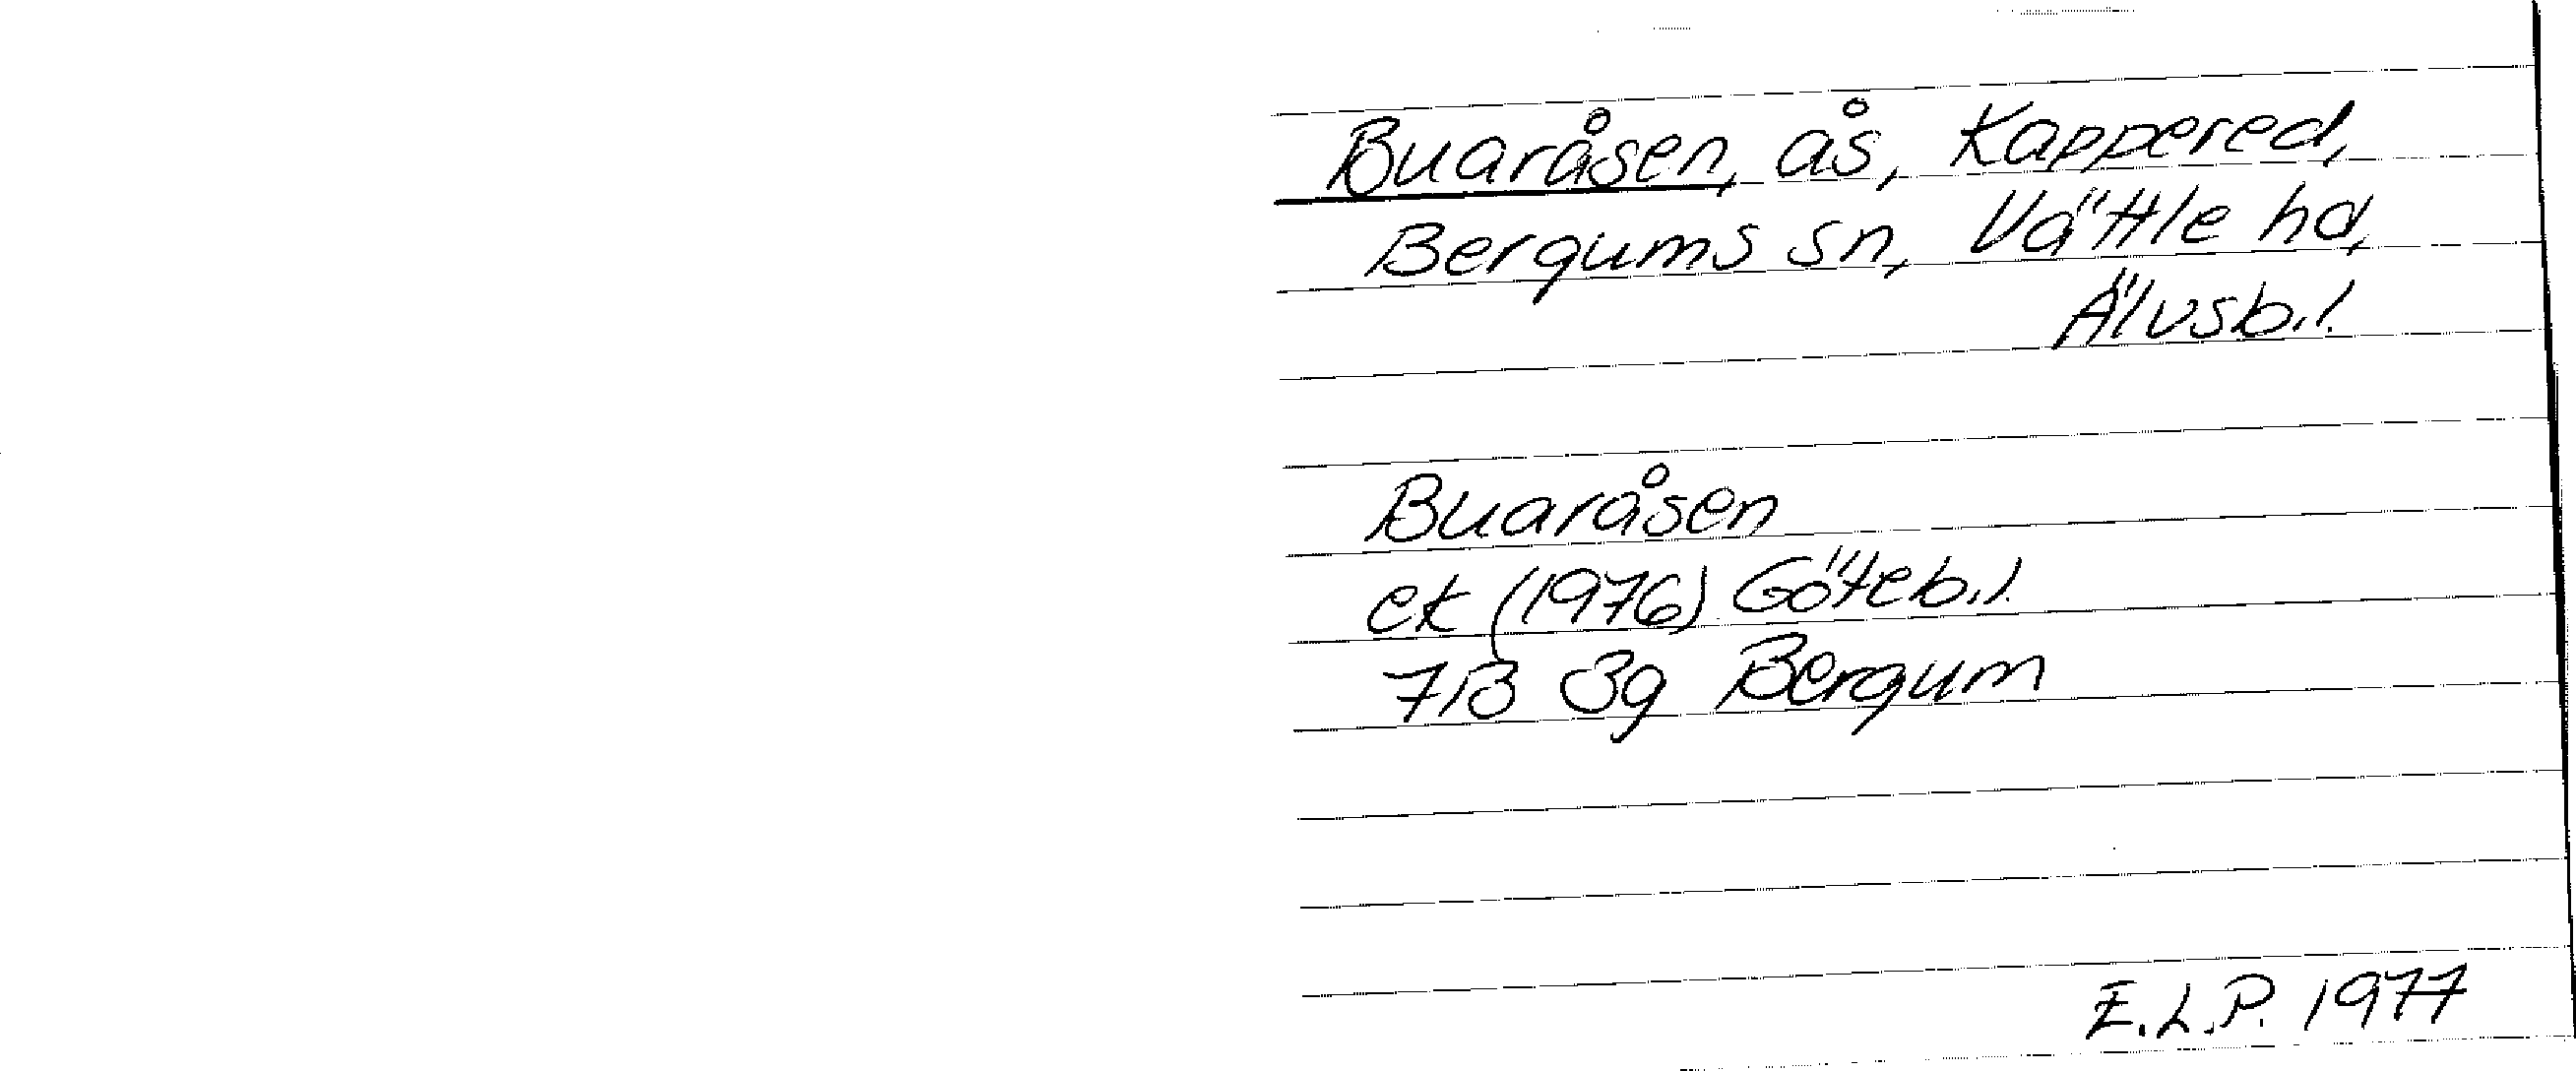 Buaråsen, ås, Kappered,
Bergums sn, Vättle hd,
Älvsb.l.
Buaråsen
ek (1976) Göteb.l.
7B 3g Bergum
E.L.P. 1977